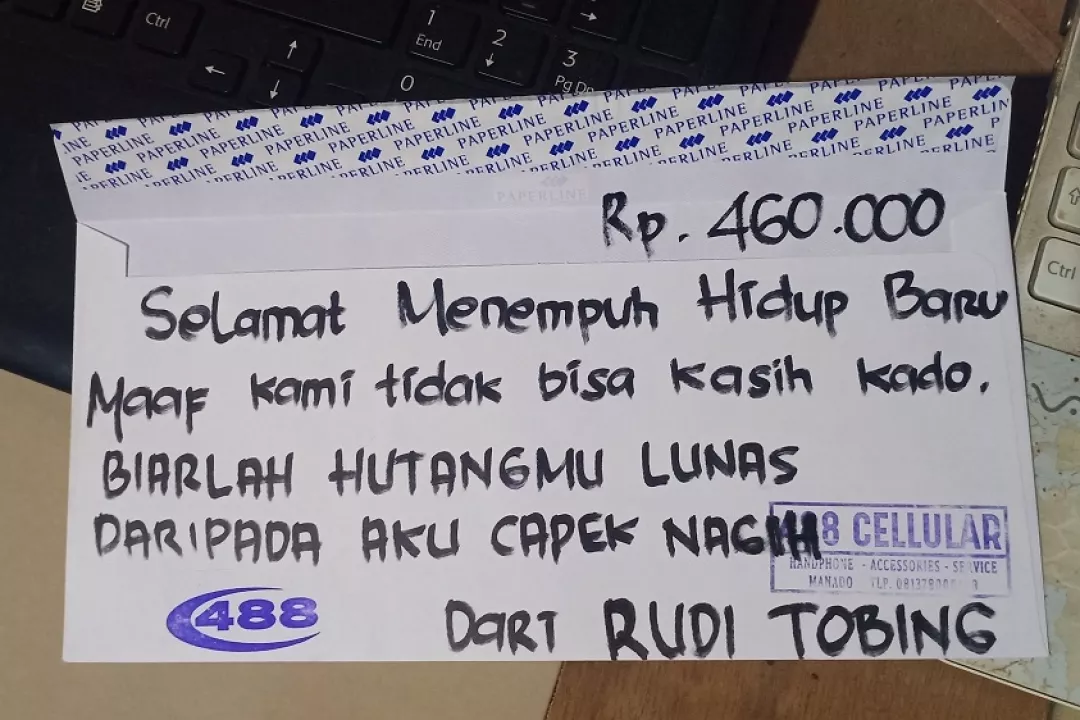 Ctrl
1
End
2
3
Pg Dn
0
PAPERLINE PAPERLINE PAPERLINE PAPERLINE PAPERLINE PAPERLINE
PAPERLINE
Rp. 460.000
Selamat Menempuh Hidup Baru
Maaf kami tidak bisa kasih kado.
BIARLAH HUTANGMU LUNAS
DARIPADA AKU CAPEK NAGIH
8 CELLULAR
HANDPHONE - ACCESSORIES - SERVICE
MANADO
488
Dari RUDI TOBING
Ctrl